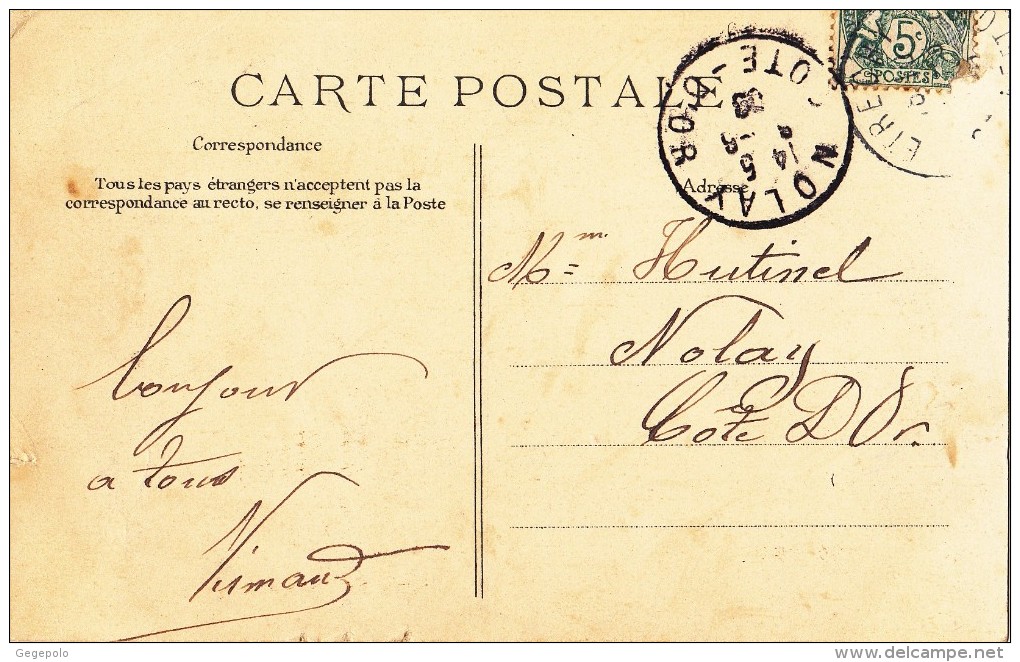 5c
POSTES
CARTE POSTALE
NOLAY
COTE-D'OR
14
5
Correspondance
Tous les pays étrangers n'acceptent pas la
correspondance au recto, se renseigner à la Poste
Adresse
Mme Hutinel
Nolay
Côte D'Or
bonjour
a tous
Gegepolo
delcampe.net